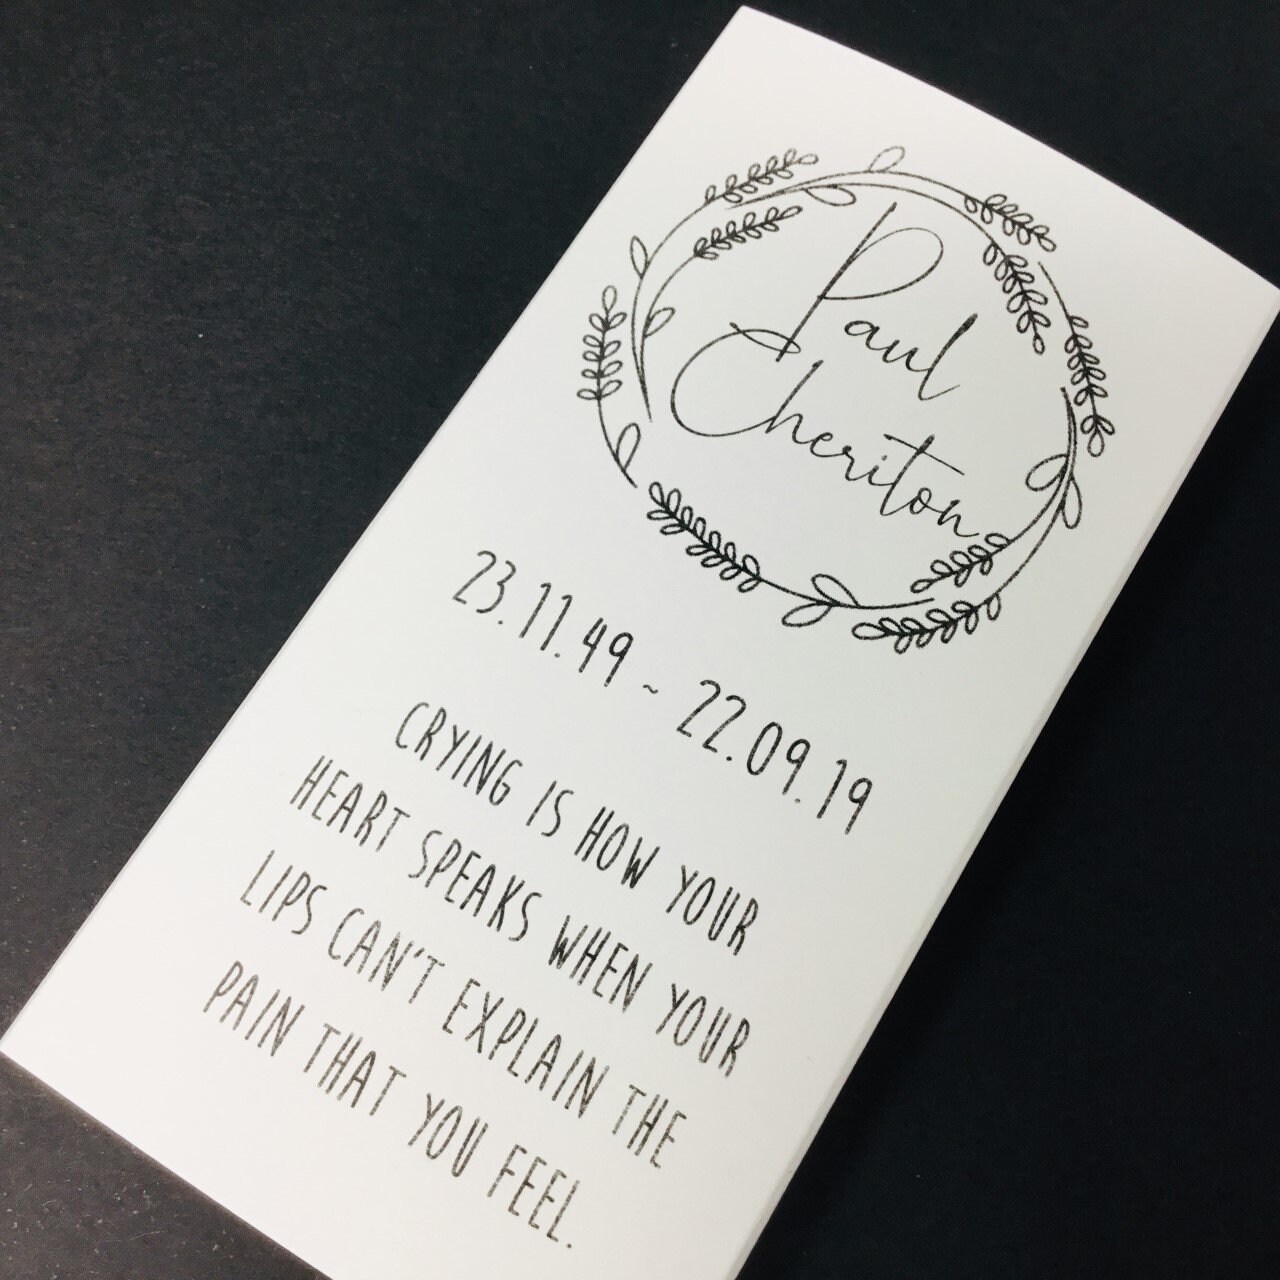 Paul
Cheriton
23.11.49 ~ 22.09.19
CRYING IS HOW YOUR
HEART SPEAKS WHEN YOUR
LIPS CAN'T EXPLAIN THE
PAIN THAT YOU FEEL.